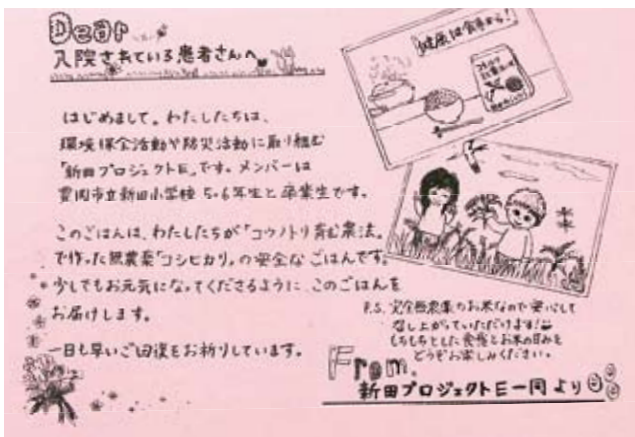 Dear
入院されている患者さんへ
健康は食事から！
はじめまして。わたしたちは、
環境保全活動や防災活動に取り組む
「新田プロジェクトE」です。メンバーは
豊岡市立新田小学校 5・6年生と卒業生です。
このごはんは、わたしたちが「コウノトリ育む農法」
で作った無農薬「コシヒカリ」の安全なごはんです。
少しでもお元気になってくださるように、このごはんを
お届けします。
一日も早いご回復をお祈りしています。
P.S. 完全無農薬のお米なので安心して
召し上がっていただけます!
もちもちとした食感とお米の甘みを
どうぞお楽しみください。
From.
新田プロジェクトE一同より